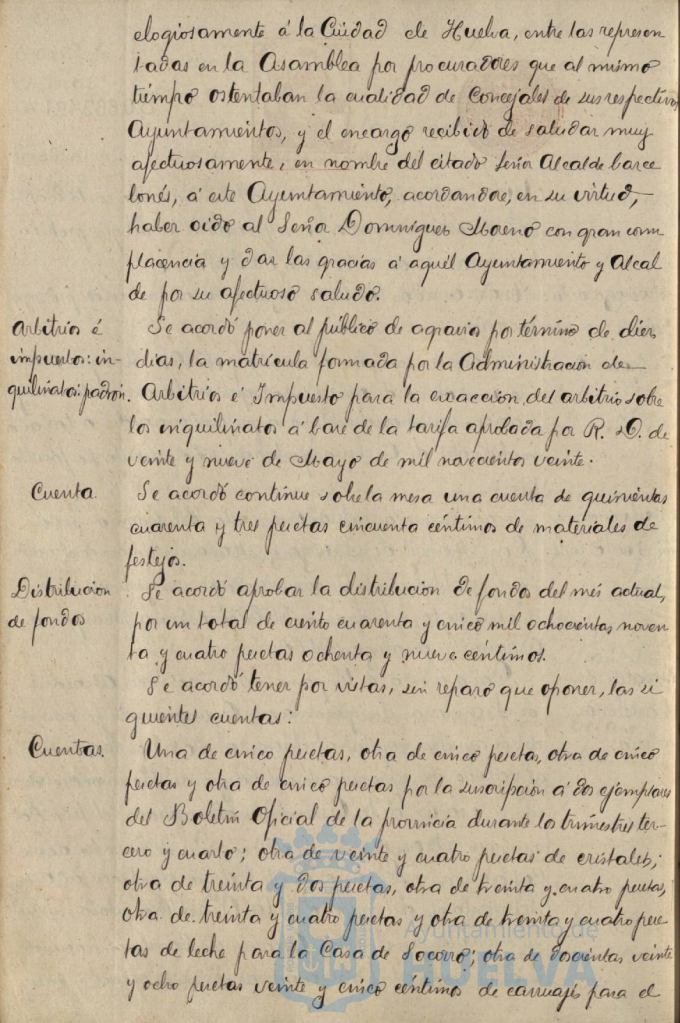 elogiosamente á la Ciudad de Huelva, entre las represen
tadas en la Asamblea por procuradores que al mismo
tiempo ostentaban la cualidad de Concejales de sus respectivos
Ayuntamientos, y el encargo recibido de saludar muy
afectuosamente, en nombre del citado Señor Alcalde barce
lonés, á este Ayuntamiento, acordandose, en su virtud,
haber oido al Señor Dominguez Moreno con gran com
placencia y dar las gracias á aquél Ayuntamiento y Alcal
de por su afectuoso saludo.
Arbitrios é
impuestos: in-
quilinatos: padrón.
Se acordó poner al público de agravios por término de diez
dias, la matrícula formada por la Administracion de
Arbitrios é Impuesto para la exaccion del arbitrio sobre
los inquilinatos á base de la tarifa aprobada por R. D. de
veinte y nueve de Mayo de mil novecientos veinte.
Cuenta.
Se acordó continue sobre la mesa una cuenta de quinientas
cuarenta y tres pesetas cincuenta céntimos de materiales de
festejos.
Distribucion
de fondos
Se acordó aprobar la distribucion de fondos del mes actual,
por un total de ciento cuarenta y cinco mil ochocientas noven
ta y cuatro pesetas ochenta y nueve céntimos.
Se acordó tener por vistas, sin reparo que oponer, las si
guientes cuentas:
Cuentas.
Una de cinco pesetas, otra de cinco pesetas, otra de cinco
pesetas y otra de cinco pesetas por la suscripción á dos ejemplares
del Boletin Oficial de la provincia durante los trimestres ter-
cero y cuarto; otra de veinte y cuatro pesetas de cristales;
otra de treinta y dos pesetas, otra de treinta y cuatro pesetas,
otra de treinta y cuatro pesetas y otra de treinta y cuatro pese
tas de leche para la Casa de Socorro; otra de doscientas veinte
y ocho pesetas veinte y cinco céntimos de carruajes para el
Ayuntamiento de
HUELVA